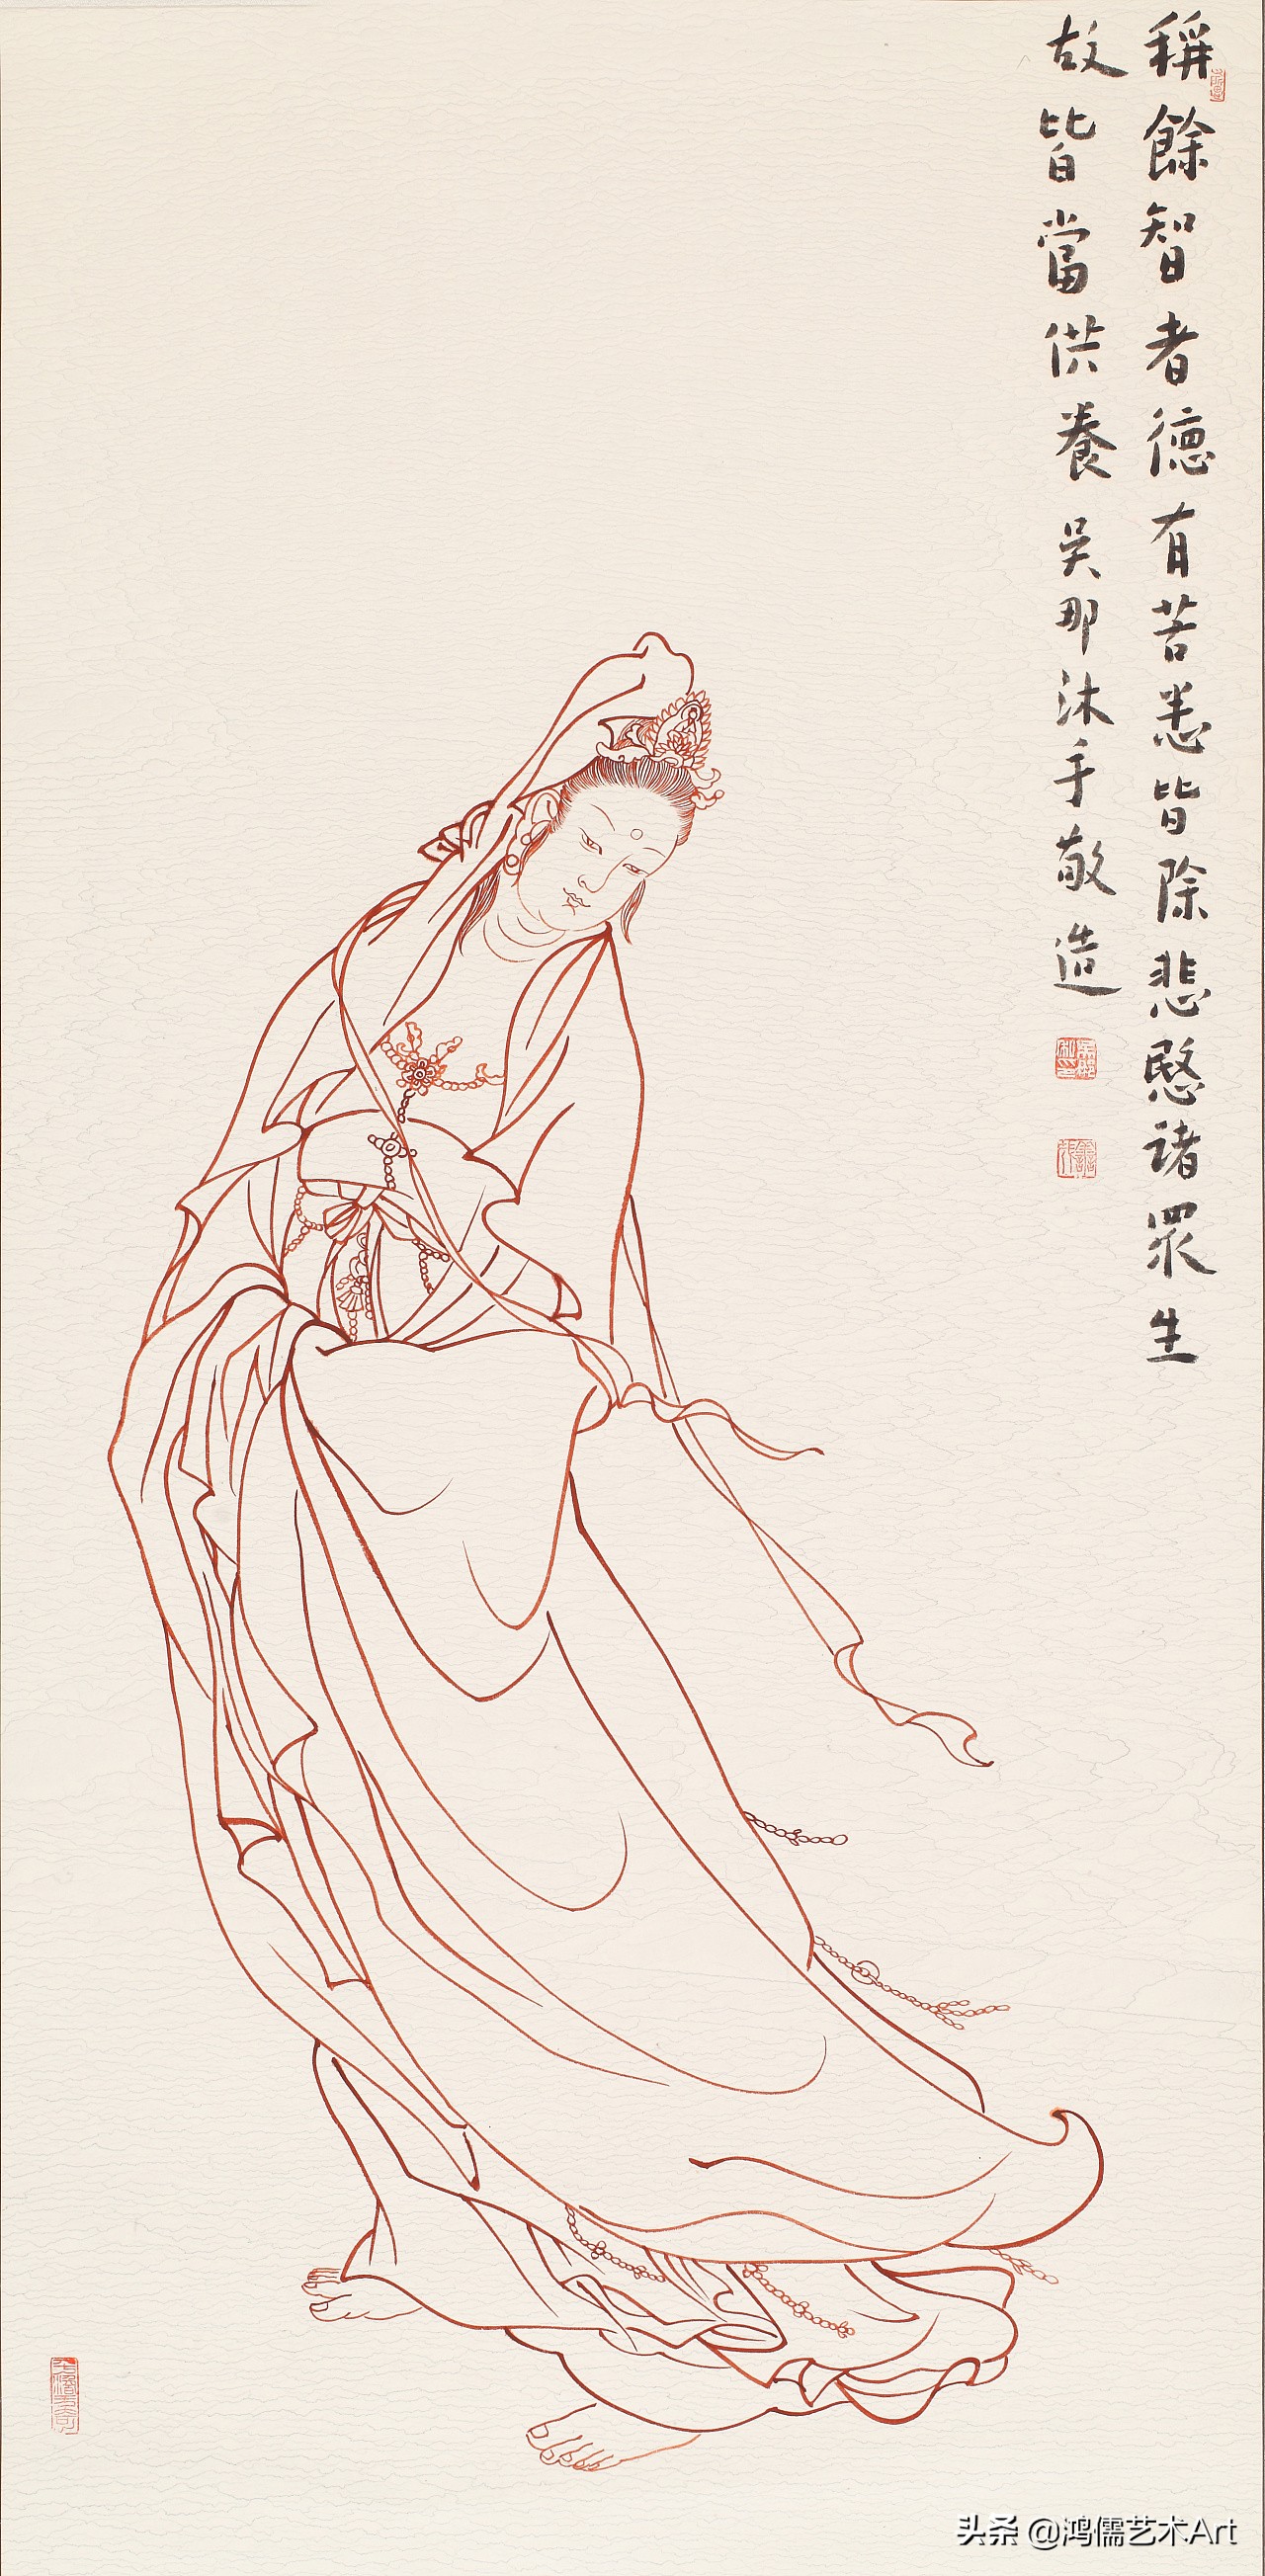 稱餘智者德有苦悉皆除悲愍諸眾生
故皆當供養 吴那沐手敬造
头条 @鸿儒艺术Art